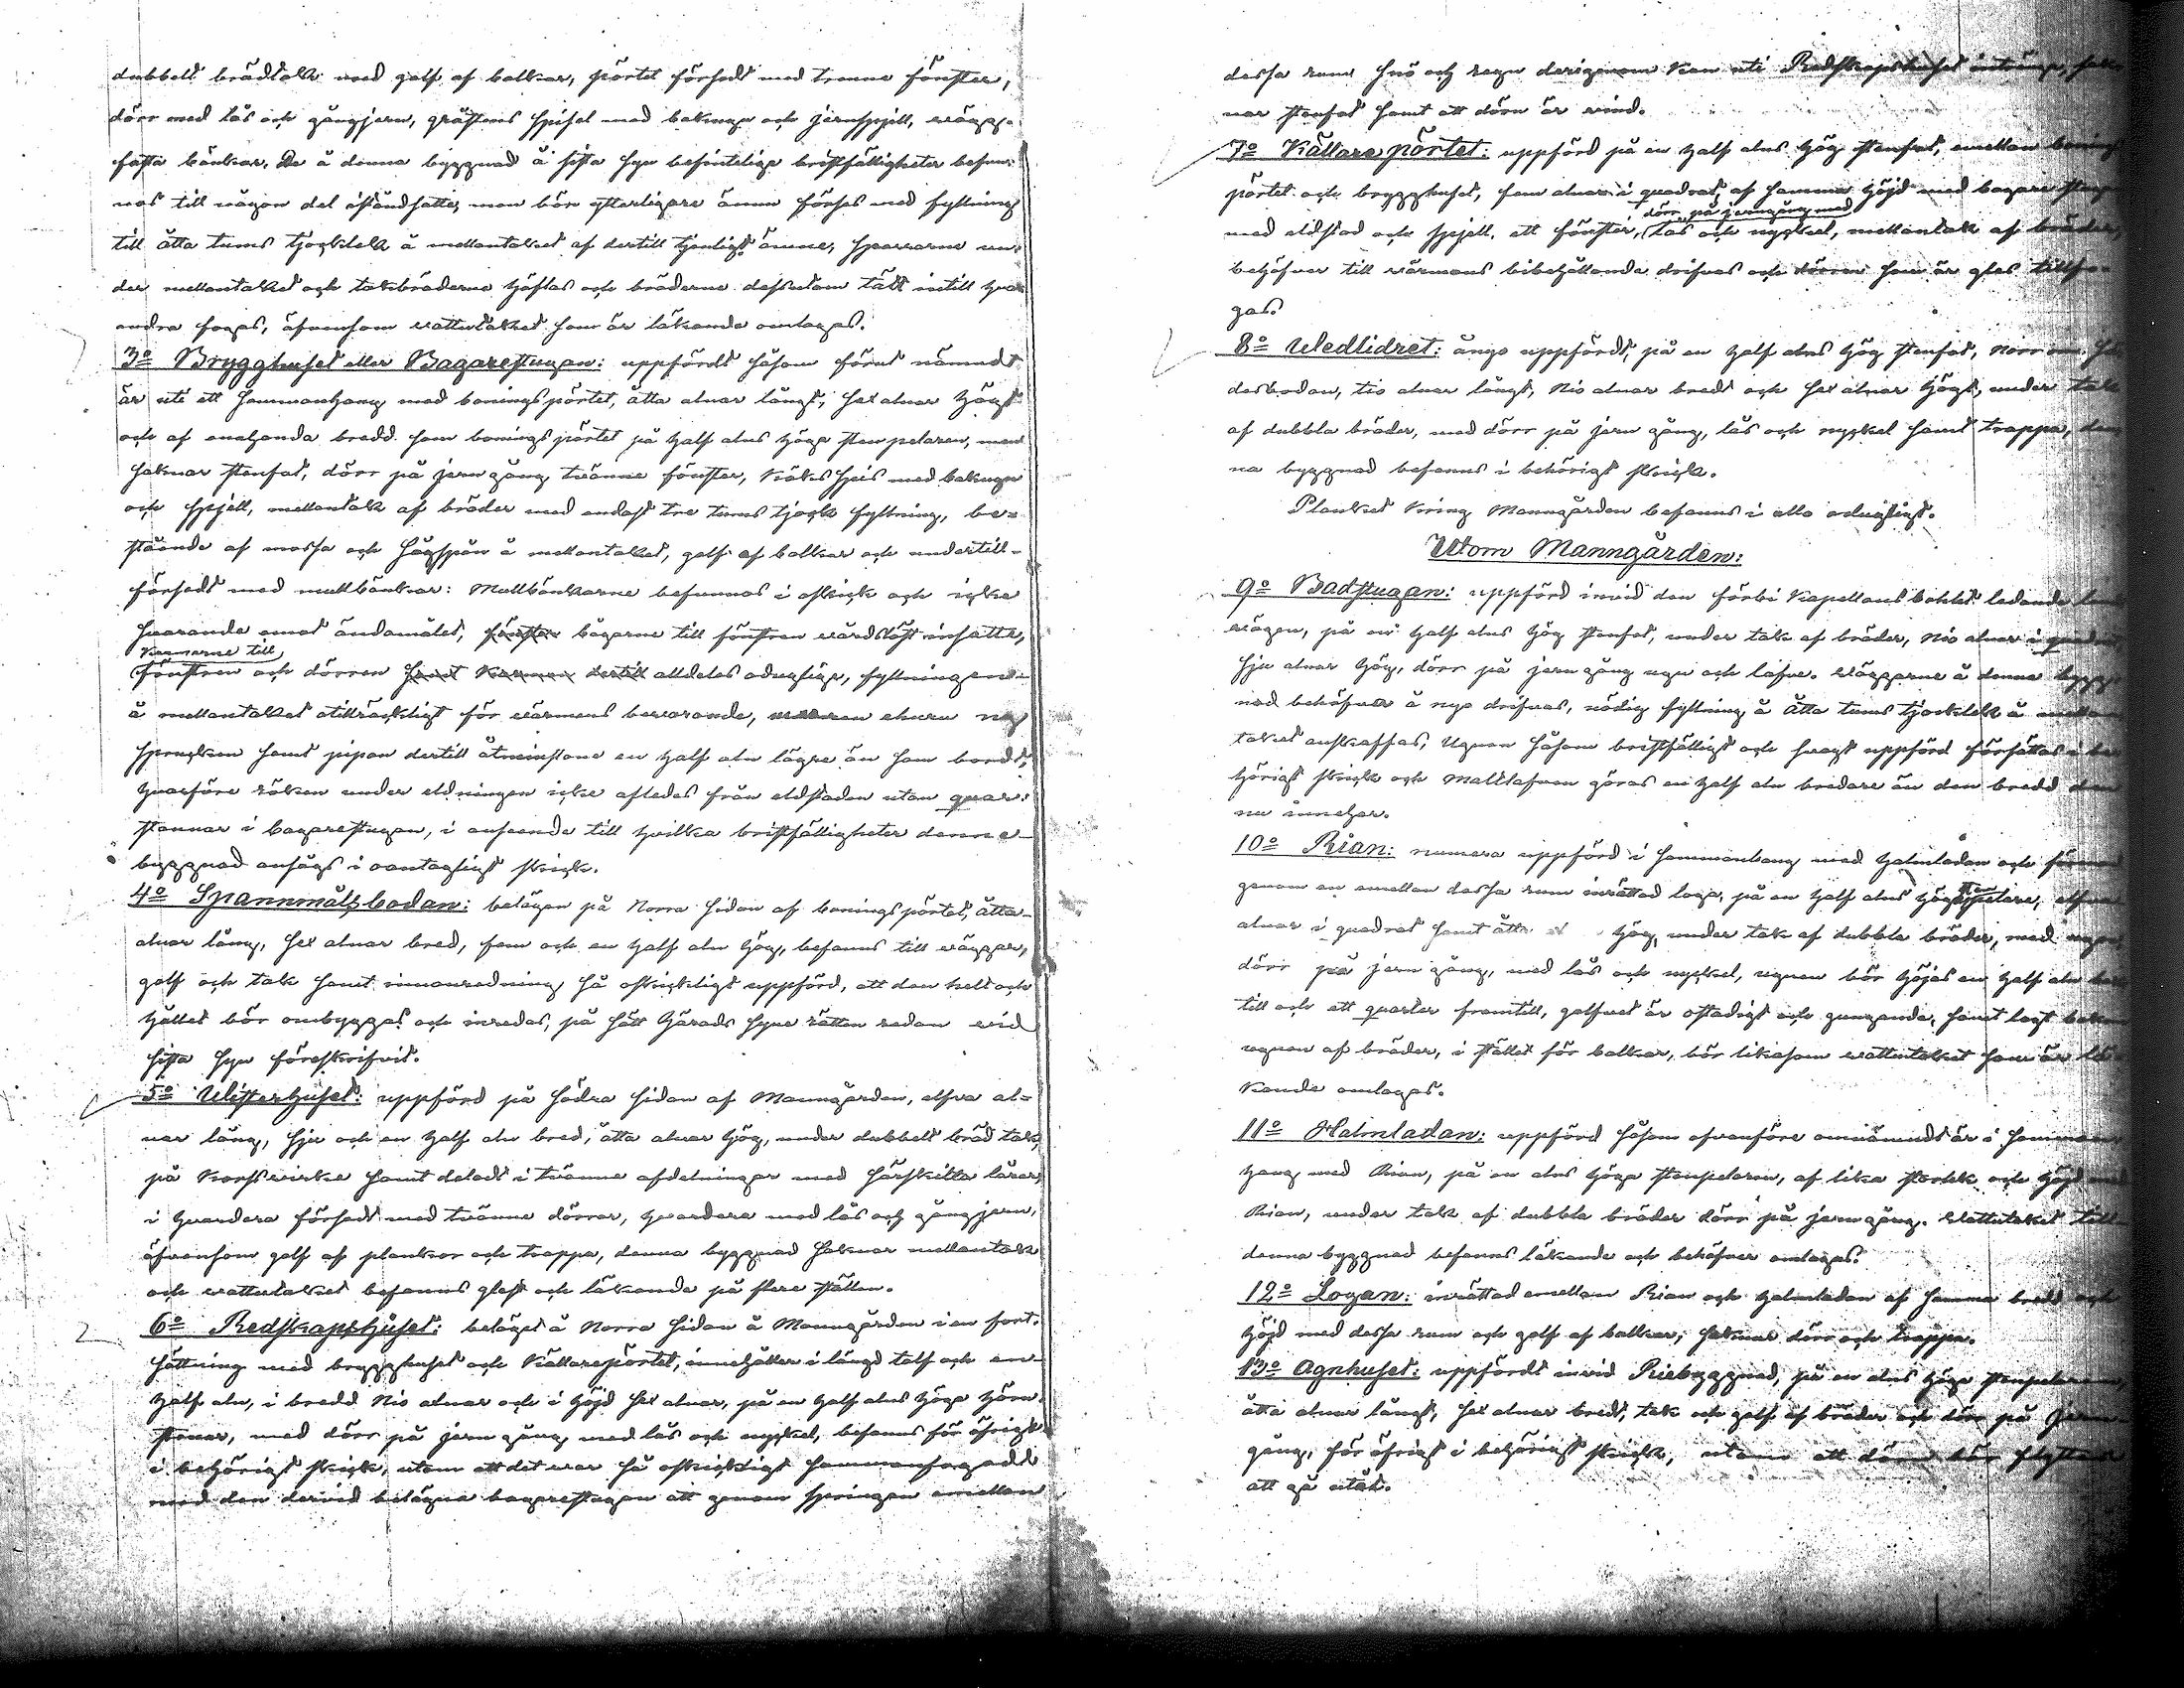 dubbelt brädtak med golf af balkar, pörtet försedt med trenne fönster,
dörr med lås och gångjern, gråstens spisel med bakugn och jernspjell, vägg-
fasta bänkar. De å denna byggnad å sista syn befintelige bristfälligheter befun-
nos till någon del iståndsatte, men bör ytterligare ännu förses med fyllning
till åtta tums tjocklek å mellantaket af dertill tjenligt ämne, sparrarne un-
der mellantaket och takbräderne häftas och bräderne dessutom tätt intill hvar
andra fogas, äfvensom vattutaket som är läkande omlagas.
3o Brygghuset eller Bagarestugan: uppfördt såsom förut nämndt
är uti ett sammanhang med boningspörtet, åtta alnar långt, sex alnar högt
och af enahanda bredd som boningspörtet på half alns höga stenpelaren, men
saknar stenfot, dörr på jern gång, tvänne fönster, köksspis med bakugn
och spjell, mellantak af bräder med endast tre tums tjock fyllning, be-
stående af mossa och sågspån å mellantaket, golf af balkar och undertill
försedt med mullbänkar: Mullbänkarne befunnos i oskick och icke
svarande emot ändamålet, fönster bågarne till fönstren vårdslöst insatte,
Karmarne till
fönstren och dörren samt Karmen dertill alldeles oduglige, fyllningen
å mellantaket otillräckligt för värmens bevarande, ehuru
samt pipan dertill åtminstone en half aln lägre än som bordt,
hvarföre röken under eldningen icke afledes från eldstaden utan quar-
stannar i bagarestugan, i anseende till hvilka bristfälligheter denne
byggnad ansågs i oantagligt skick.
4o Spannmålsbodan: belägen på Norra sidan af boningspörtet, åtta
alnar lång, sex alnar bred, fem och en half aln hög, befanns till väggar,
golf och tak samt innanredning så oskickligt uppförd, att den helt och
hållet bör ombyggas och inredas, på sätt Härads Syne rätten redan vid
sista syn föreskrifvit.
5o Visterhuset: uppförd på södra sidan af Manngården, elfva al-
nar lång, sju och en half aln bred, åtta alnar hög, under dubbelt bräd tak,
på korssvirke samt deladt i tvänne afdelningar med särskilta lårar
i hvardera försedt med tvänne dörrar, hvardera med lås och gångjern,
äfvensom golf af plankor och trappa, denna byggnad saknar mellantak
och vattutaket befanns glest och läkande på flere ställen.
6o Redskapshuset: beläget å Norra sidan å Manngården i en fort-
sättning med brygghuset och Källarepörtet, innehåller i längd tolf och en
half aln, i bredd Nio alnar och i höjd sex alnar, på en half alns höga hörn-
stenar, med dörr på jern gång, med lås och nyckel, befanns för öfrigt
i behörigt skick, utom att det var så oskickligt sammanfogadt
med den dervid belägna bagarestugan att genom springan emellan
dessa rum snö och regn derigenom kan uti Redskapshuset intränga, sak-
nar stenfot samt att dörn är vind.
7o Källarepörtet: uppförd på en half alns hög stenfot, emellan bonings-
pörtet och brygghuset, fem alnar i quadrat af samma höjd med bagare stugan
dörr på jerngång med
med eldstad och spjell, ett fönster, lås och nyckel, mellantak af bräder,
behöfver till värmens bibehållande drifvas och dörren som är gles tillfo-
gas.
8o Vedlidret: ånyo uppfördt, på en half alns hög stenfot, norr om
desbodan, tio alnar långt, Nio alnar bredt och sex alnar högt, under tak
af dubbla bräder, med dörr på jern gång, lås och nyckel samt trappa, den-
na byggnad befanns i behörigt skick.
Planket kring Manngården befanns i allo odugligt.
Utom Manngården:
9o Badstugan: uppförd invid den förbi Kapellans bohlet ledande
vägen, på en half alns hög stenfot, under tak af bräder, Nio alnar i quadrat,
sju alnar hög, dörr på jern gång, ugn och lafve. Väggarne å denna bygg-
nad behöfver å nyo drifvas, nödig fyllning å åtta tums tjocklek å mellan-
taket anskaffas, Ugnen såsom bristfälligt och svagt uppförd försättas i be-
hörigt skick och Maltlafven göras en half aln bredare än den bredd den
nu innehar.
10o Rian: numera uppförd i sammanhang med halmladan och
sten
genom en emellan dessa rum inrättad loga, på en half alns höga pelare, elfva
alnar i quadrat samt åtta hög, under tak af dubbla bräder, med ugn,
dörr på jern gång, med lås och nyckel, ugnen bör höjas en half aln bak-
till och ett quarter framtill, golfvet är ostadigt och gungande, samt lagt bakom
ugnen af bräder, i stället för balkar, bör likasom vattutaket som är lä-
kande omlagas.
11o Halmladan: uppförd såsom ofvanföre omnämndt är i samman-
hang med Rian, på en alns höga stenpelaren, af lika storlek och höjd med
Rian, under tak af dubbla bräder dörr på jerngång. Vattutaket till
denna byggnad befanns läkande och behöfver omlagas.
12o Logan: inrättad emellan Rian och halmladan af samma bredd och
höjd med dessa rum och golf af balkar, saknar dörr och trappa.
13o Agnhuset: uppfördt invid Riebyggnad, på en alns höga stenpelaren,
åtta alnar långt, sex alnar bredt, tak och golf af bräder och dörr på jern
gång, för öfrigt i behörigt skick, utom att dörn bör flyttas
att gå utåt.